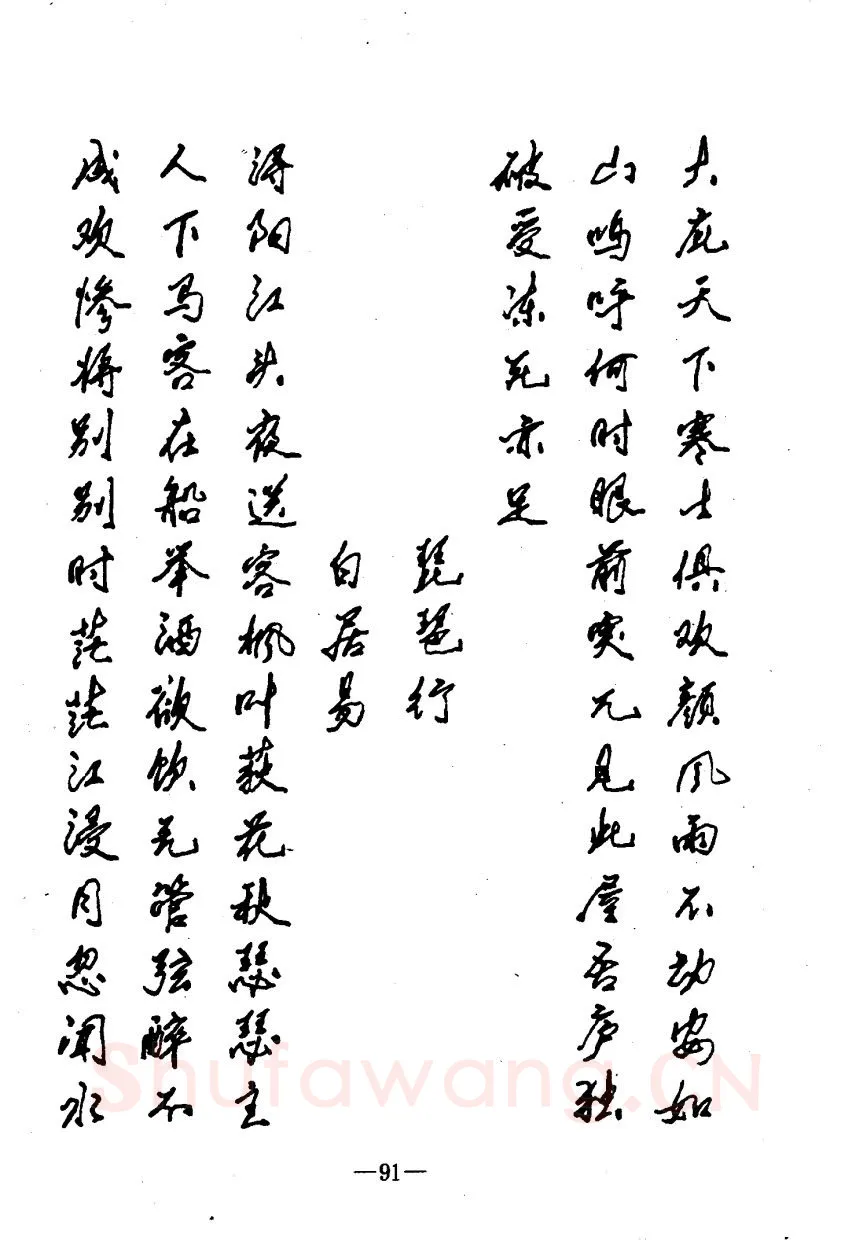 大庇天下寒士俱欢颜风雨不动安如
山呜呼何时眼前突兀见此屋吾庐独
破受冻死亦足
琵琶行
白居易
浔阳江头夜送客枫叶荻花秋瑟瑟主
人下马客在船举酒欲饮无管弦醉不
成欢惨将别别时茫茫江浸月忽闻水
—91—
Shufawang.CN